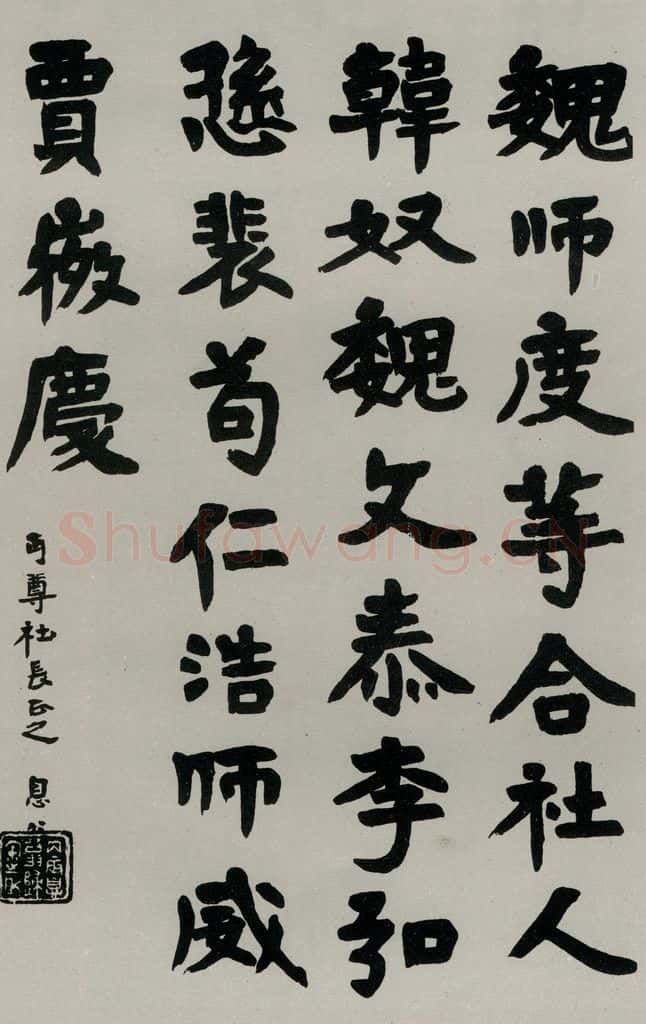 魏师度等合社人
韓奴魏文泰李弘
愻裴苟仁浩师威
賈嶶慶
丏尊社長正之 息翁
Shufawang.CN